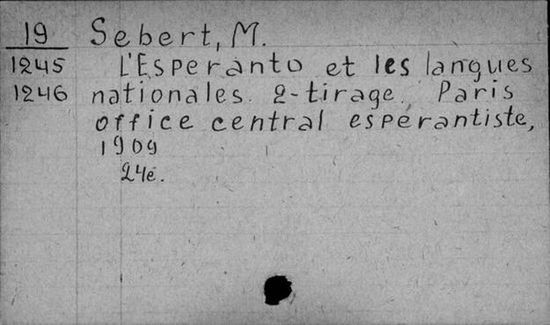 19 Sebert, M.
1245 L'Esperanto et les langues
1246 nationales. 2-tirage. Paris
office central espérantiste,
1909
24c.